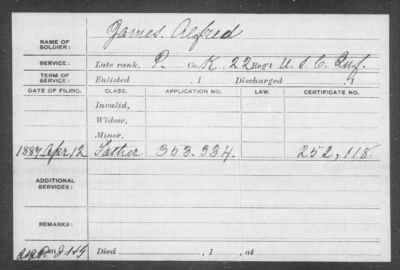 NAME OF SOLDIER: James Alfred
SERVICE: Late rank, P. Co. K, 22 Regt U. S. C. Inf.
TERM OF SERVICE: Enlisted , 1 Discharged , 1
DATE OF FILING. CLASS. APPLICATION NO. LAW. CERTIFICATE NO.
Invalid,
Widow,
Minor,
1887 Apr 12 Father 353.334. 252,118.
ADDITIONAL SERVICES:
REMARKS:
Died , 1 , at